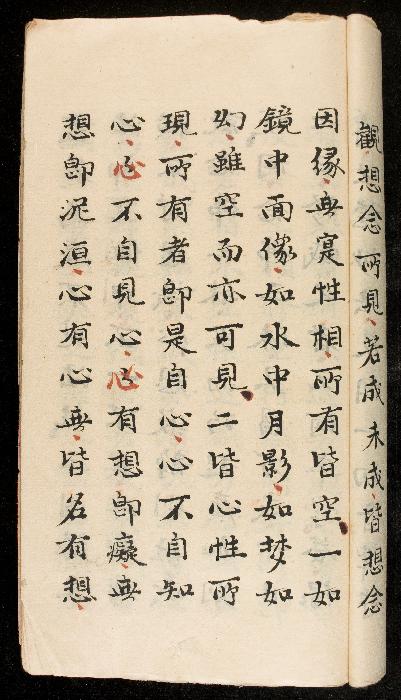 觀想念所見若成未成皆想念
因緣無寔性相所有皆空一如
鏡中面像如水中月影如梦如
幻雖空而亦可見二皆心性所
現所有者卽是自心心不自知
心心不自見心心有想卽癡無
想卽泥洹心有心無皆名有想